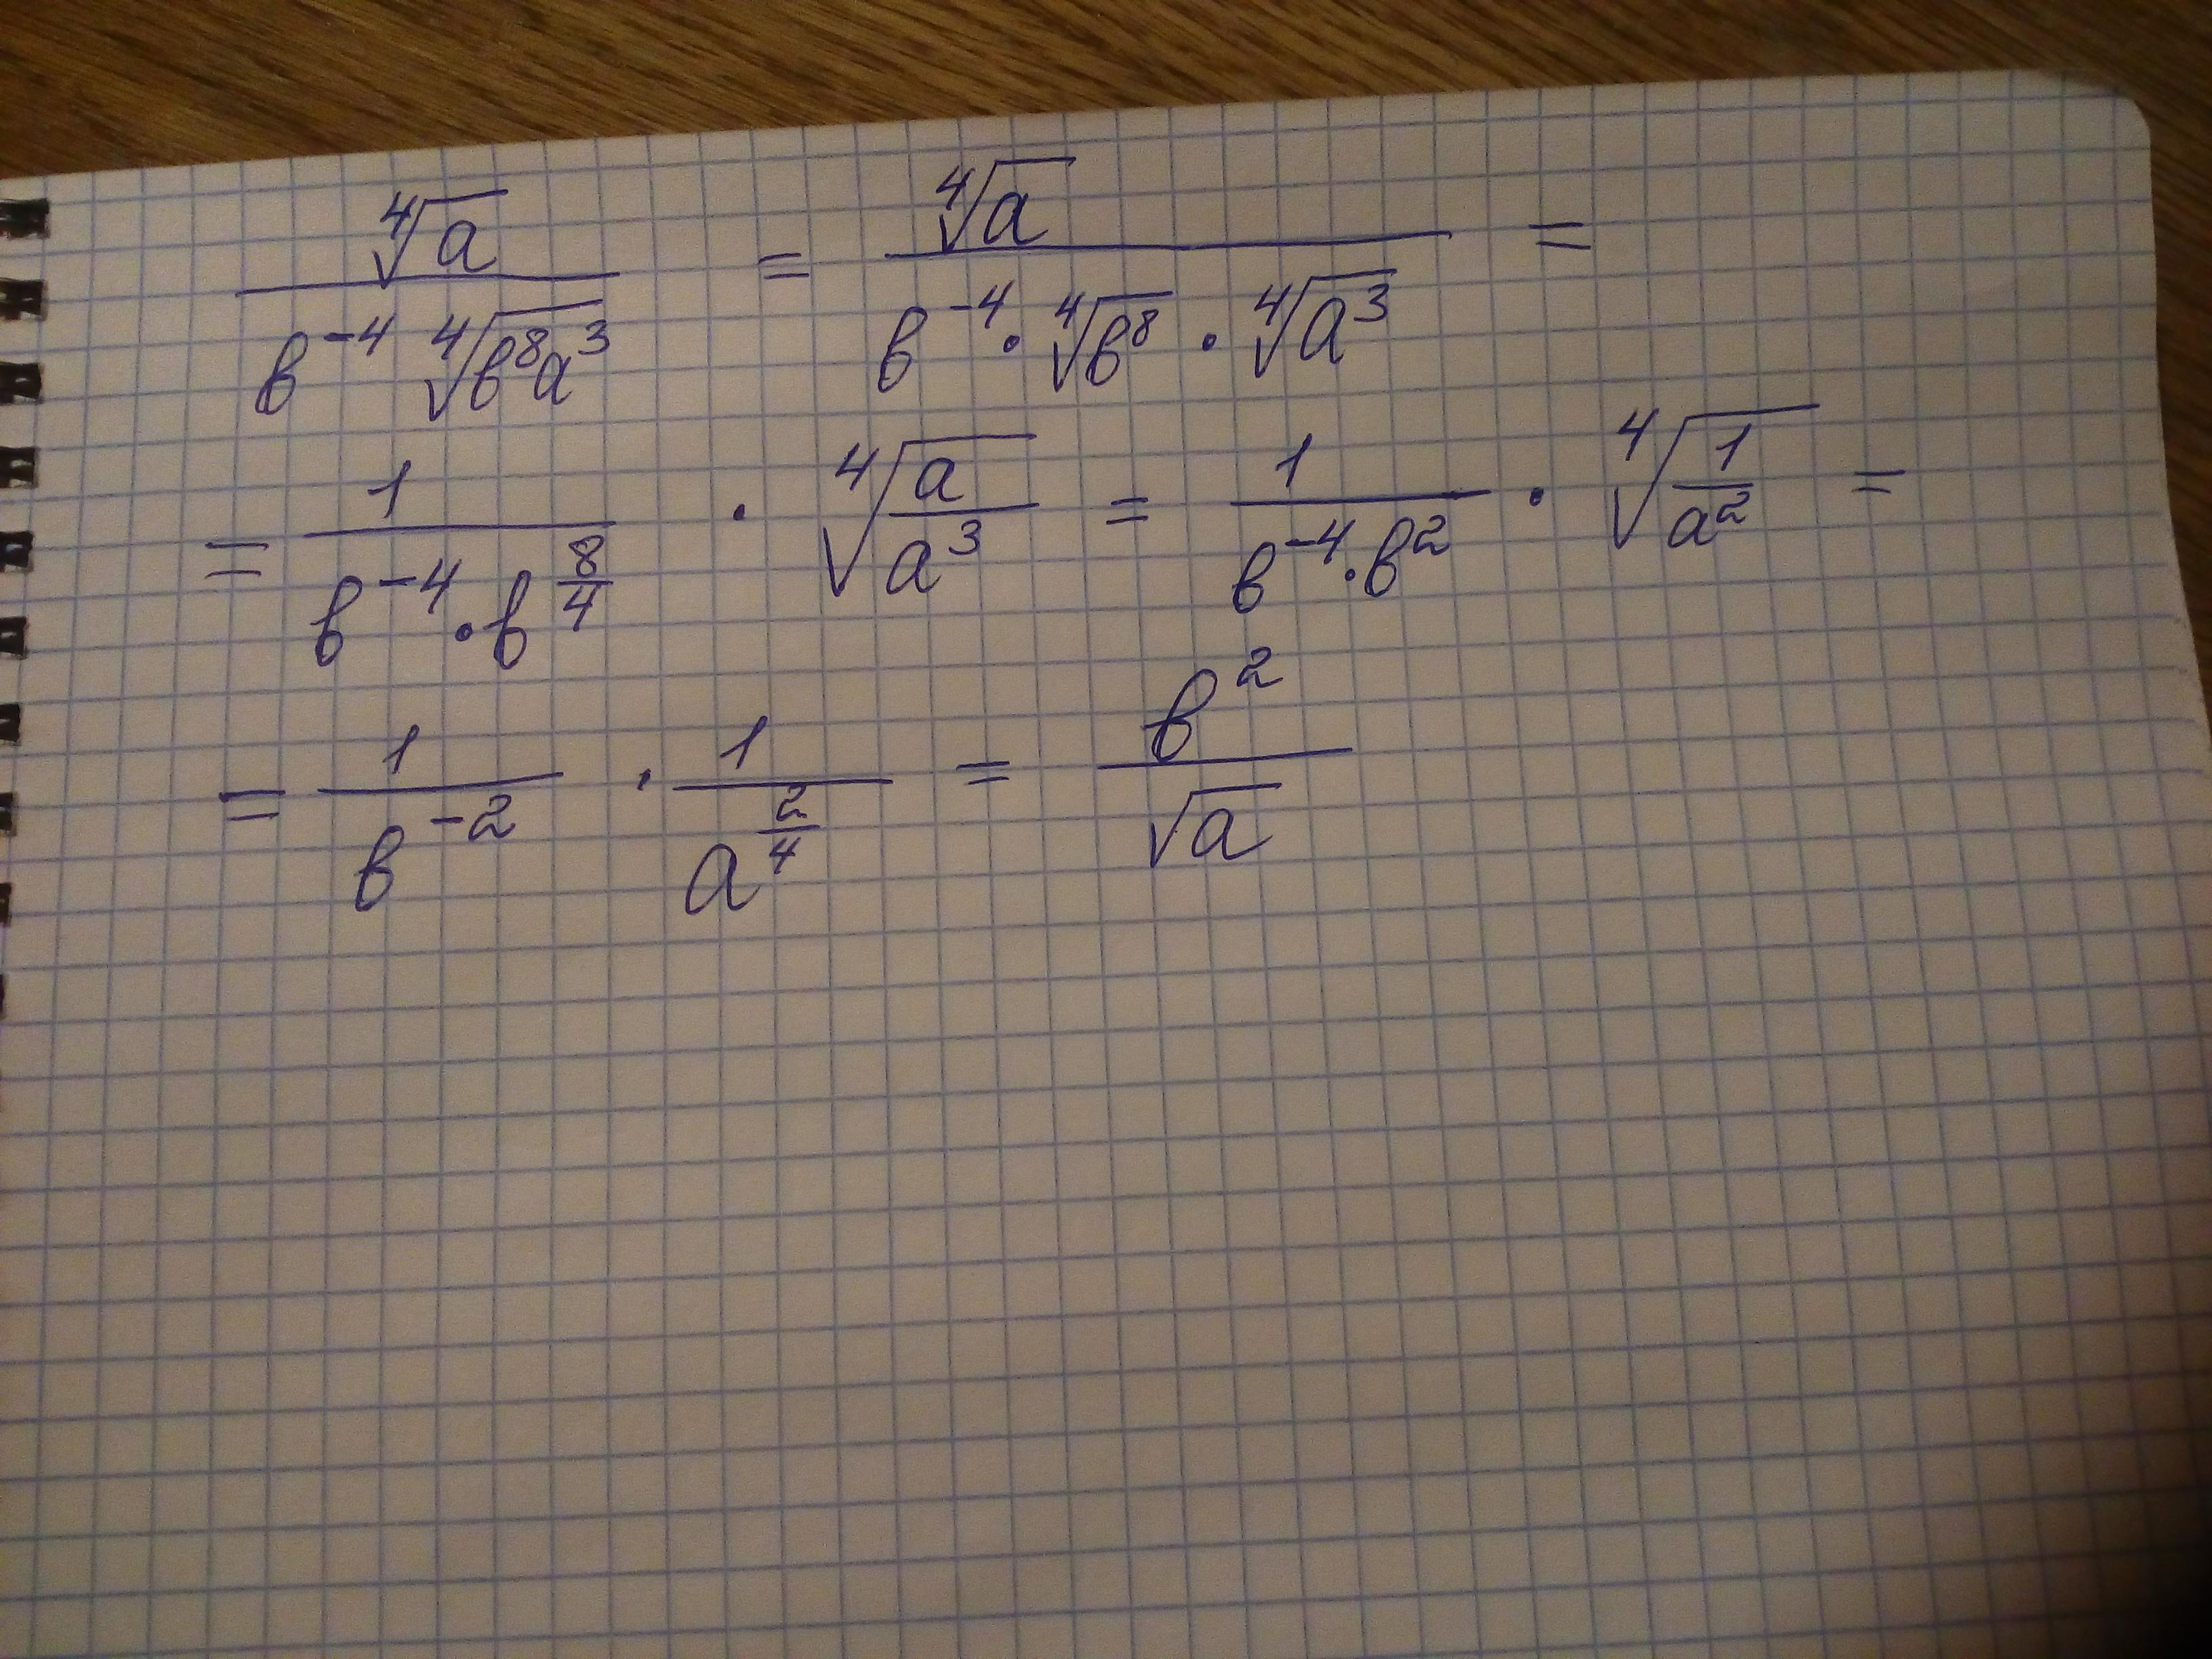 $\frac{\sqrt[4]{a}}{b^{-4} \sqrt[4]{b^8 a^3}} = \frac{\sqrt[4]{a}}{b^{-4} \cdot \sqrt[4]{b^8} \cdot \sqrt[4]{a^3}} =$
$= \frac{1}{b^{-4} \cdot b^{\frac{8}{4}}} \cdot \sqrt[4]{\frac{a}{a^3}} = \frac{1}{b^{-4} \cdot b^2} \cdot \sqrt[4]{\frac{1}{a^2}} =$
$= \frac{1}{b^{-2}} \cdot \frac{1}{a^{\frac{2}{4}}} = \frac{b^2}{\sqrt{a}}$